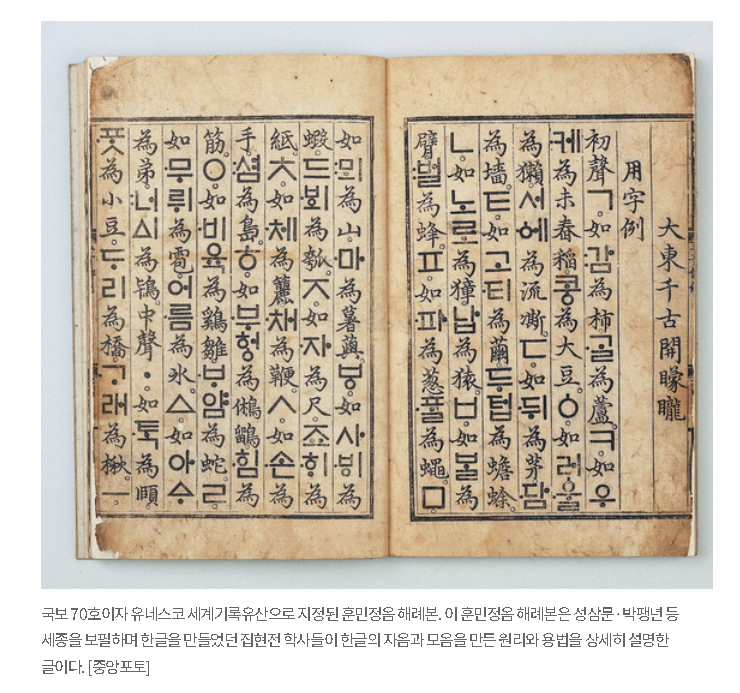 大東千古開矇矓
用字例
初聲ㄱ。如감為柿。ᄀᆞᆯ為蘆。ㅋ。如우
케為未舂稻。콩為大豆。ㆁ。如러ᅌᅮᆯ
為獺。서ᅌᅦ為流凘。ㄷ。如뒤為茅。담
為墻。ㅌ。如고티為繭。두텁為蟾蜍。
ㄴ。如노로為獐。납為猿。ㅂ。如ᄇᆞᆯ為
臂。벌為蜂。ㅍ。如파為葱。ᄑᆞᆯ為蠅。ㅁ。
如뫼為山。마為薯藇。ㅸ。如사ᄫᅵ為
蝦。드ᄫᅴ為瓠。ㅈ。如자為尺。죠ᄒᆡ為
紙。ㅊ。如체為簏。채為鞭。ㅅ。如손為
手。셤為島。ㅎ。如부헝為鵂鶹。힘為
筋。ㅇ。如비육為鷄雛。ᄇᆞ얌為蛇。ㄹ。
如무뤼為雹。어름為氷。ㅿ。如아ᅀᆞ
為弟。너ᅀᅵ為鴇。中聲ㆍ。如ᄐᆞᆨ為頤。
ᄑᆞᆺ為小豆。ᄃᆞ리為橋。ᄀᆞ래為楸。ㅡ。
국보 70호이자 유네스코 세계기록유산으로 지정된 훈민정음 해례본. 이 훈민정음 해례본은 성삼문·박팽년 등
세종을 보필하며 한글을 만들었던 집현전 학사들이 한글의 자음과 모음을 만든 원리와 용법을 상세히 설명한
글이다. [중앙포토]